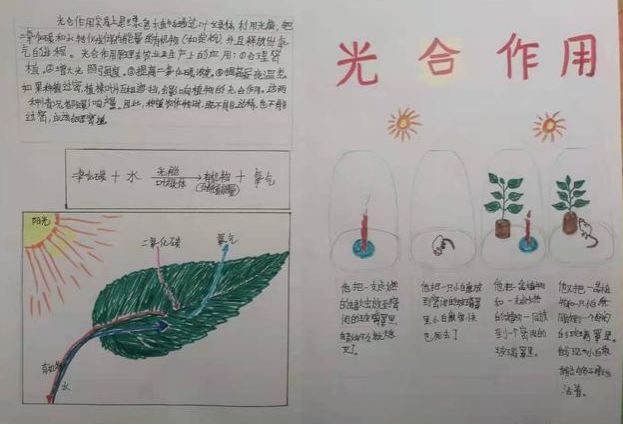 光合作用
光合作用实质上是绿色植物通过叶绿体利用光能,把
二氧化碳和水转化成储存能量的有机物(如淀粉)并且释放出氧
气的过程。光合作用原理在农业生产上的应用:①合理密
植,②增大光照强度,③提高二氧化碳浓度,
如果种植过密,植株叶片互相遮挡,会影响植物的光合作用。这两
因此,种植农作物时,既不能过稀,也不能
过密,应该合理密植。
二氧化碳 + 水 光能 叶绿体 有机物 + 氧气
(储存能量)
阳光
二氧化碳
氧气
有机物
水
他把一支点燃
的蜡烛放到密
闭的玻璃罩里
蜡烛不久就熄
灭了。
他把一只小白鼠放
到密闭的玻璃罩
里小白鼠很快
也死去了
他把一盆植物
和一支点燃
的蜡烛一同放
在一个密闭的
玻璃罩里。
他又把一盆植
物和一只小白鼠
同放到一个密闭
的玻璃罩里。
他发现小白鼠
活着。